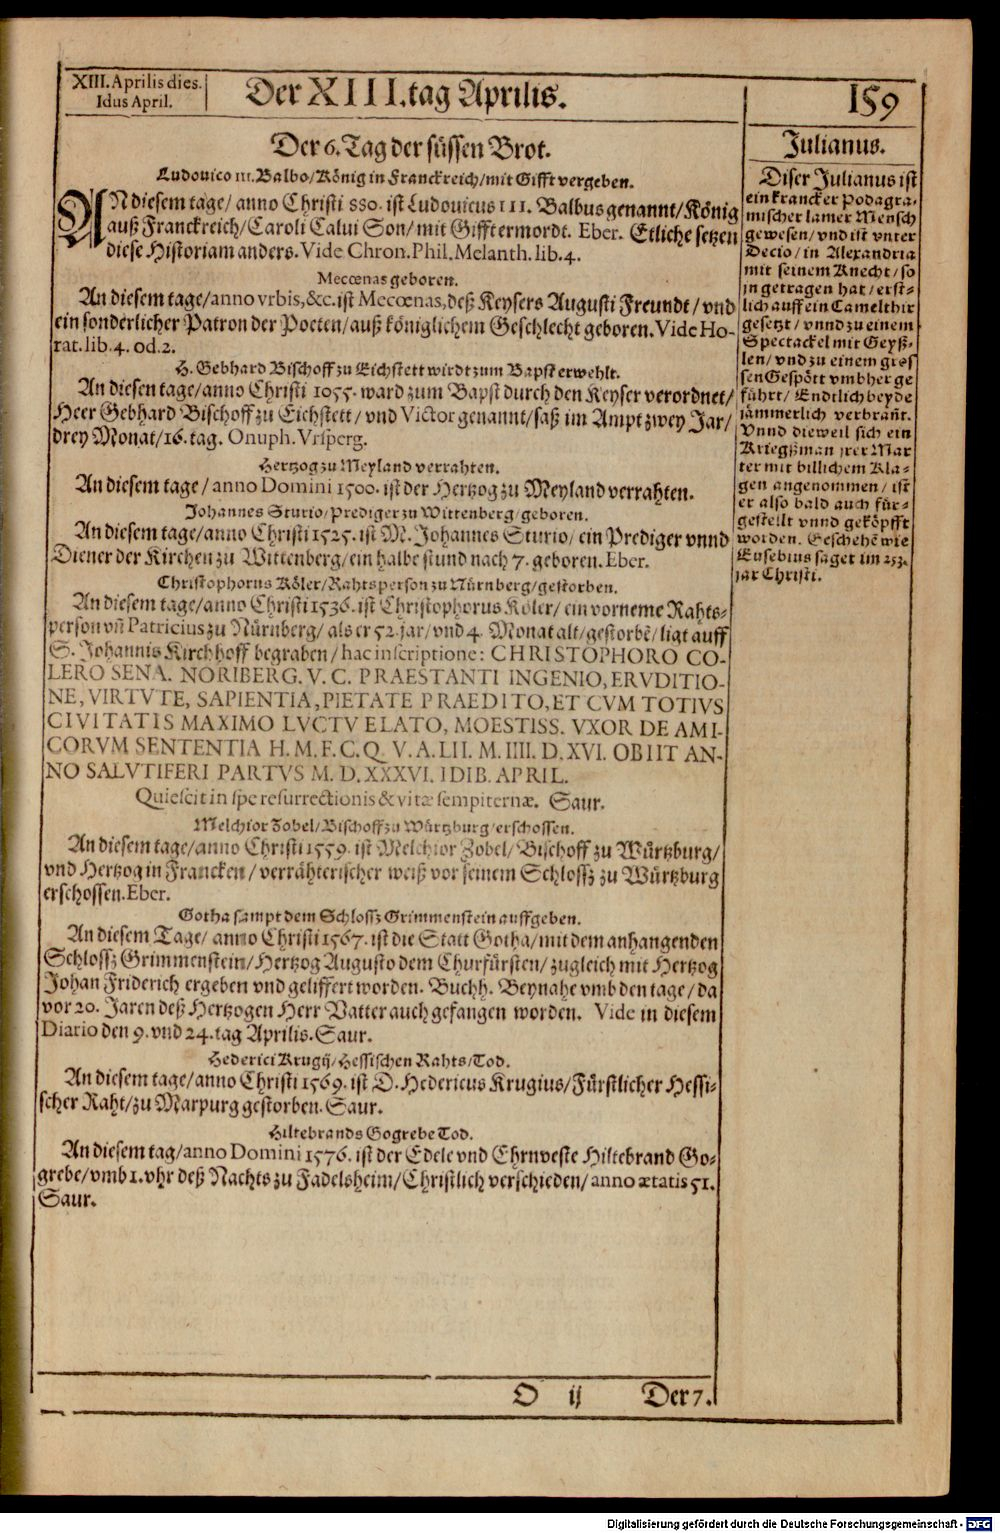 XIII. Aprilis dies.
Idus April.
Der XIII. tag Aprilis.
159
Der 6. Tag der süssen Brot.
Ludouico III. Balbo/König in Franckreich/mit Gifft vergeben.
AN diesem tage/ anno Christi 880. ist Ludouicus III. Balbus genannt/König
auß Franckreich/Caroli Calui Son/mit Gifft ermordt. Eber. Etliche setzen
diese Historiam anders. Vide Chron. Phil. Melanth. lib. 4.
Mecœnas geboren.
An diesem tage/anno vrbis, &c. ist Mecœnas, deß Keysers Augusti Freundt/vnd
ein sonderlicher Patron der Poeten/auß königlichem Geschlecht geboren. Vide Ho-
rat. lib. 4. od. 2.
H. Gebhard Bischoff zu Eichstett wirdt zum Bapst erwehlt.
An diesen tage/anno Christi 1055. ward zum Bapst durch den Keyser verordnet/
Heer Gebhard Bischoff zu Eichstett/vnd Victor genannt/saß im Ampt zwey Jar/
drey Monat/16. tag. Onuph. Vrsperg.
Hertzog zu Meyland verrahten.
An diesem tage/ anno Domini 1500. ist der Hertzog zu Meyland verrahten.
Johannes Sturio/Prediger zu Wittenberg/geboren.
An diesem tage/anno Christi 1525. ist M. Johannes Sturio/ ein Prediger vnnd
Diener der Kirchen zu Wittenberg/ein halbe stund nach 7. geboren. Eber.
Christophorus Köler/Rahtsperson zu Nürnberg/gestorben.
An diesem tage/anno Christi 1536. ist Christophorus Köler/ ein vorneme Rahts-
person vñ Patricius zu Nürnberg/ als er 52. jar/vnd 4. Monat alt/gestorbẽ/ligt auff
S. Johannis Kirchhoff begraben/hac inscriptione: CHRISTOPHORO CO-
LERO SENA. NORIBERG. V. C. PRAESTANTI INGENIO, ERVDITIO-
NE, VIRTVTE, SAPIENTIA, PIETATE PRAEDITO, ET CVM TOTIVS
CIVITATIS MAXIMO LVCTV ELATO, MOESTISS. VXOR DE AMI-
CORVM SENTENTIA H. M. F. C. Q. V. A. LII. M. IIII. D. XVI. OBIIT AN-
NO SALVTIFERI PARTVS M. D. XXXVI. IDIB. APRIL.
Quiescit in spe resurrectionis & vitæ sempiternæ. Saur.
Melchior Zobel/Bischoff zu Würtzburg/erschossen.
An diesem tage/anno Christi 1559. ist Melchior Zobel/Bischoff zu Würtzburg/
vnd Hertzog in Francken/verrähterischer weiß vor seinem Schlossz zu Würtzburg
erschossen. Eber.
Gotha sampt dem Schlossz Grimmenstein auffgeben.
An diesem Tage/ anno Christi 1567. ist die Statt Gotha/mit dem anhangenden
Schlossz Grimmenstein/Hertzog Augusto dem Churfürsten/zugleich mit Hertzog
Johan Friderich ergeben vnd geliffert worden. Buchh. Beynahe vmb den tage/da
vor 20. Jaren deß Hertzogen Herr Vatter auch gefangen worden. Vide in diesem
Diario den 9. vnd 24. tag Aprilis. Saur.
Hederici Krugij/Hessischen Rahts/Tod.
An diesem tage/anno Christi 1569. ist D. Hedericus Krugius/Fürstlicher Hessi-
scher Raht/zu Marpurg gestorben. Saur.
Hiltebrands Gogrebe Tod.
An diesem tag/anno Domini 1576. ist der Edele vnd Ehrnveste Hiltebrand Go-
grebe/vmb 1. vhr deß Nachts zu Fadelsheim/Christlich verschieden/anno ætatis 51.
Saur.
Julianus.
Diser Julianus ist
ein krancker Podagra-
mischer lamer Mensch
gewesen/ vnd ist vnter
Decio/in Alexandria
mit seinem Knecht/so
jn getragen hat/erst-
lich auff ein Camelthir
gesetzt/ vnnd zu einem
Spectackel mit Geyß-
len/vnd zu einem gros
sen Gespött vmbher ge
führt/ Endtlich beyde
jämmerlich verbrañt.
Vnnd dieweil sich ein
Kriegßman jrer Mar
ter mit billichem Kla-
gen angenommen/ ist
er also bald auch für-
gestellt vnnd geköpfft
worden. Geschehẽ wie
Eusebius saget im 253.
jar Christi.
O ij
Der 7.
Digitalisierung gefördert durch die Deutsche Forschungsgemeinschaft - DFG